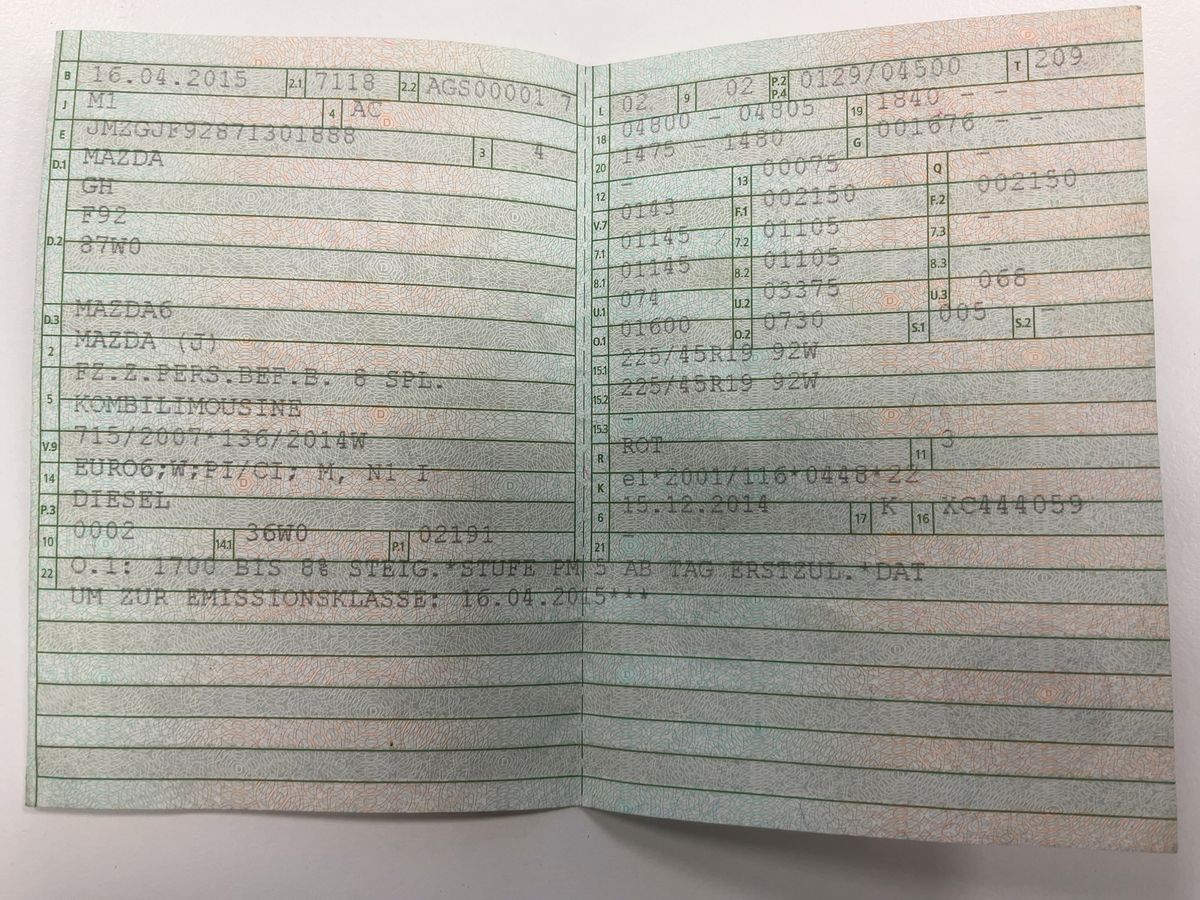 B 16.04.2015 2.1 7118 2.2 AGS00001 7
J M1 4 AC
E JMZGJF92871301888 3 4
D.1 MAZDA
GH
D.2 F92
87W0
D.3 MAZDA6
2 MAZDA (J)
5 FZ.Z.PERS.BEF.B. 8 SPL.
KOMBILIMOUSINE
V.9 715/2007*136/2014W
14 EURO6;W;PI/CI; M, N1 I
P.3 DIESEL
10 0002 14.1 36W0 P.1 02191
L 02 9 02 P.2 P.4 0129/04500 T 209
18 04800 - 04805 19 1840 - -
20 1475 - 1480 G 001676 - -
12 - 13 00075 Q -
V.7 0143 F.1 002150 F.2 002150
7.1 01145 7.2 01105 7.3 -
8.1 01145 8.2 01105 8.3 -
U.1 074 U.2 03375 U.3 068
O.1 01600 O.2 0730 S.1 005 S.2 -
15.1 225/45R19 92W
15.2 225/45R19 92W
15.3 -
R ROT 11 3
K e1*2001/116*0448*22
6 15.12.2014 17 K 16 XC444059
21 -
22 O.1: 1700 BIS 8% STEIG.*STUFE PM 5 AB TAG ERSTZUL.*DAT
UM ZUR EMISSIONSKLASSE: 16.04.2015***